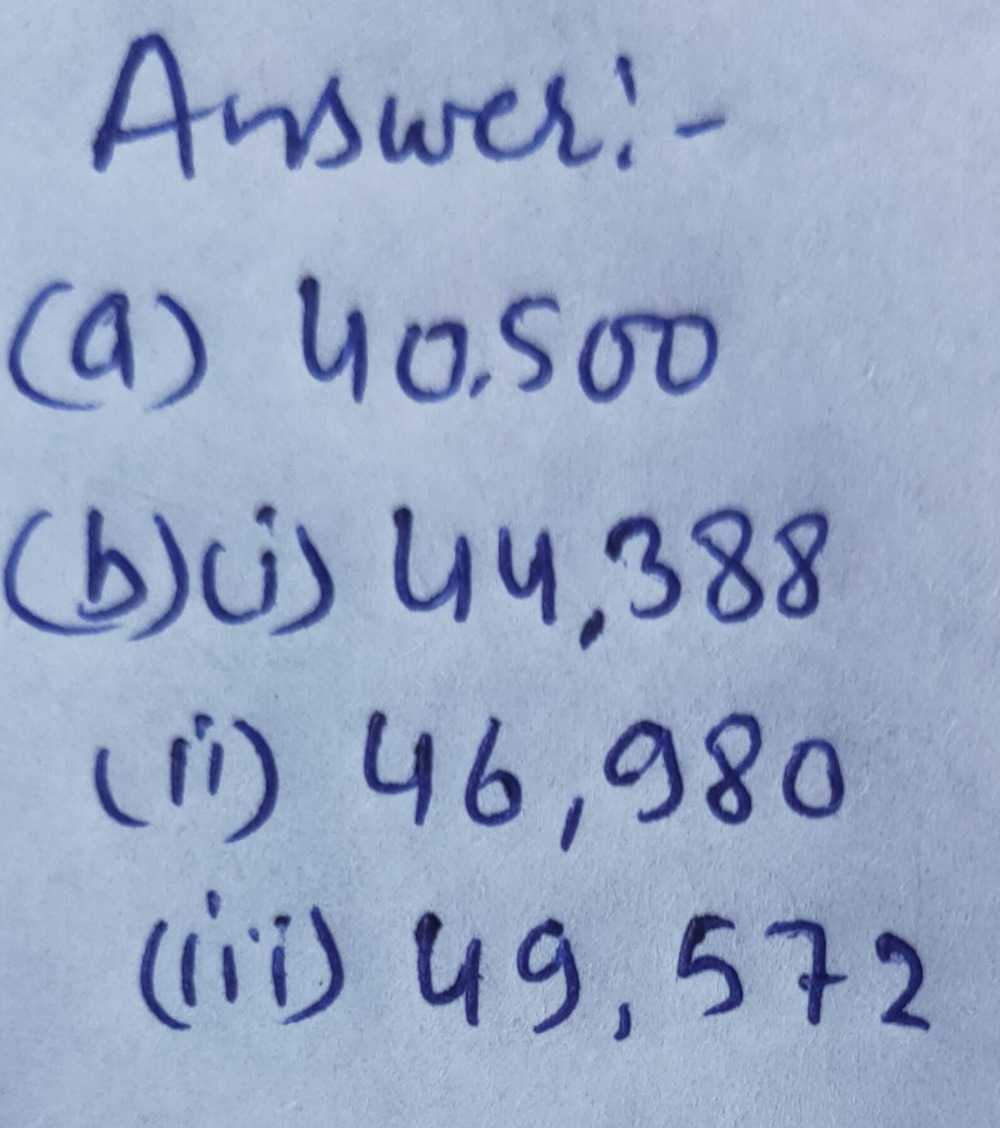 Answer:-
(a) 40,500
(b)(i) 44,388
(ii) 46,980
(iii) 49,572